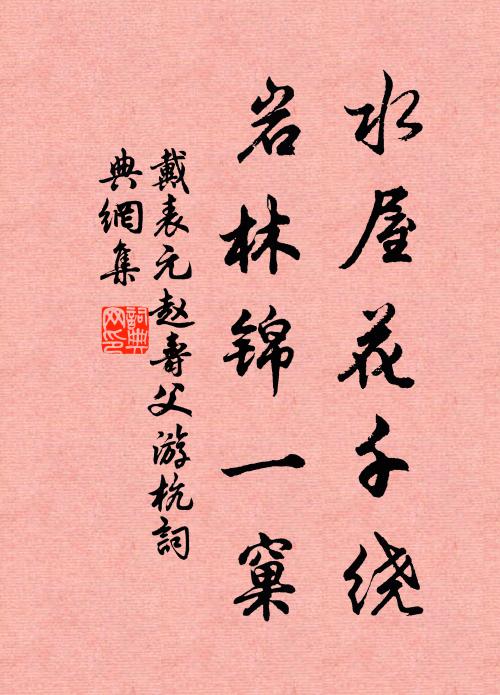 水屋花千绕
岩林锦一窠
戴表元赵寿父游杭詞
典網集
詞典网印